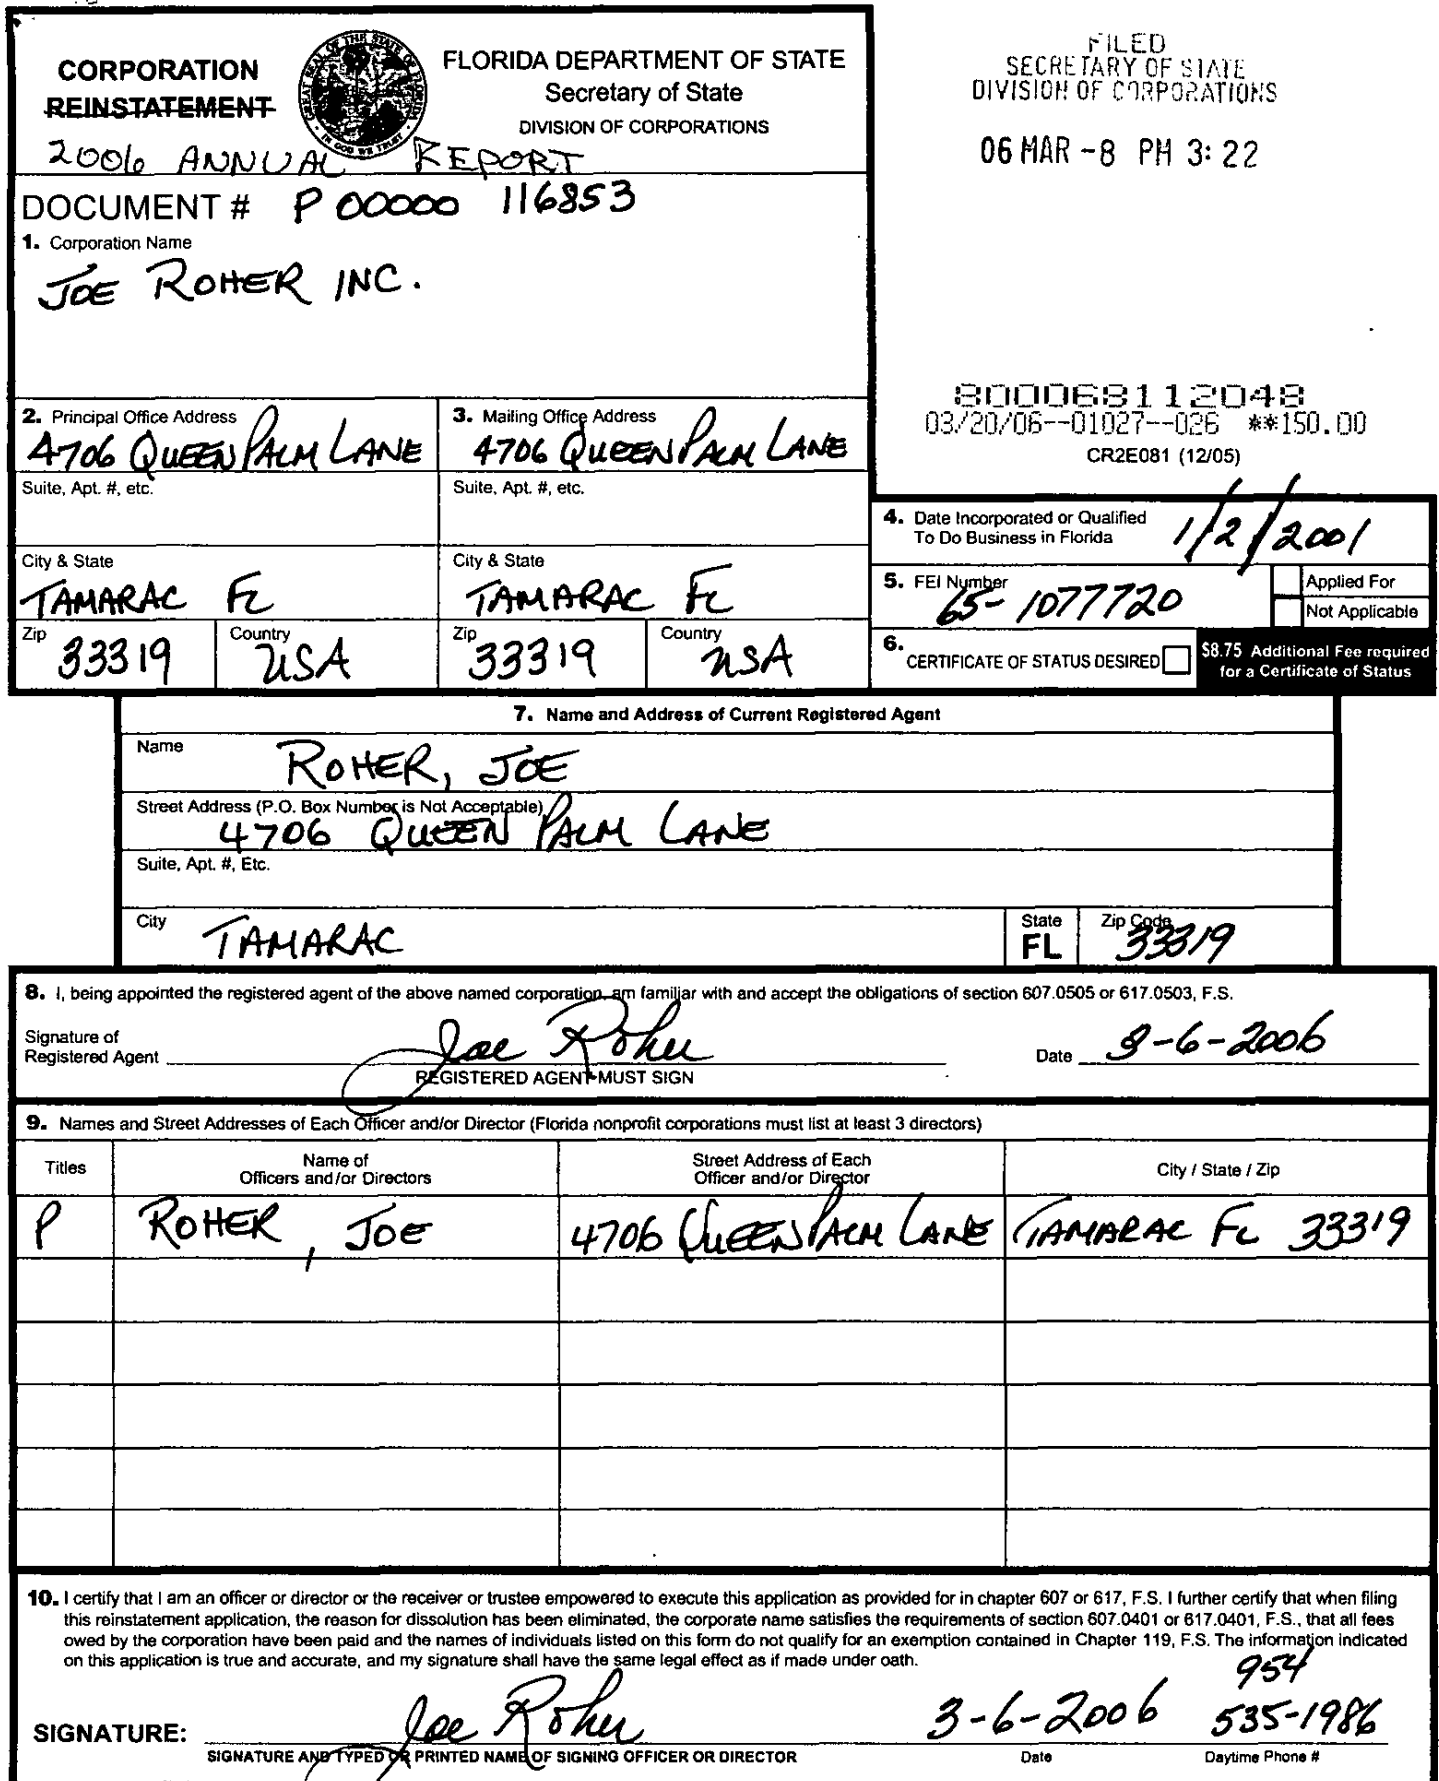 CORPORATION
REINSTATEMENT
2006 ANNUAL REPORT
FLORIDA DEPARTMENT OF STATE
Secretary of State
DIVISION OF CORPORATIONS
FILED
SECRETARY OF STATE
DIVISION OF CORPORATIONS
06 MAR -8 PM 3:22
DOCUMENT # P 00000 116853
1. Corporation Name
JOE ROHER INC.
800068112048
03/20/06--01027--026 **150.00
CR2E081 (12/05)
2. Principal Office Address
4706 QUEEN PALM LANE
3. Mailing Office Address
4706 QUEEN PALM LANE
Suite, Apt. #, etc.
Suite, Apt. #, etc.
City & State
TAMARAC FL
City & State
TAMARAC FL
Zip 33319
Country USA
Zip 33319
Country USA
4. Date Incorporated or Qualified
To Do Business in Florida 1/2/2001
5. FEI Number
65-1077720
Applied For
Not Applicable
6. CERTIFICATE OF STATUS DESIRED
$8.75 Additional Fee required
for a Certificate of Status
7. Name and Address of Current Registered Agent
Name
ROHER, JOE
Street Address (P.O. Box Number is Not Acceptable)
4706 QUEEN PALM LANE
Suite, Apt. #, Etc.
City TAMARAC
State
FL
Zip Code
33319
8. I, being appointed the registered agent of the above named corporation, am familiar with and accept the obligations of section 607.0505 or 617.0503, F.S.
Signature of
Registered Agent Joe Roher
REGISTERED AGENT MUST SIGN
Date 3-6-2006
9. Names and Street Addresses of Each Officer and/or Director (Florida nonprofit corporations must list at least 3 directors)
Titles
Name of
Officers and/or Directors
Street Address of Each
Officer and/or Director
City / State / Zip
P ROHER, JOE 4706 QUEEN PALM LANE TAMARAC FL 33319
10. I certify that I am an officer or director or the receiver or trustee empowered to execute this application as provided for in chapter 607 or 617, F.S. I further certify that when filing
this reinstatement application, the reason for dissolution has been eliminated, the corporate name satisfies the requirements of section 607.0401 or 617.0401, F.S., that all fees
owed by the corporation have been paid and the names of individuals listed on this form do not qualify for an exemption contained in Chapter 119, F.S. The information indicated
on this application is true and accurate, and my signature shall have the same legal effect as if made under oath.
954
SIGNATURE: Joe Roher 3-6-2006 535-1986
SIGNATURE AND TYPED OR PRINTED NAME OF SIGNING OFFICER OR DIRECTOR
Date
Daytime Phone #